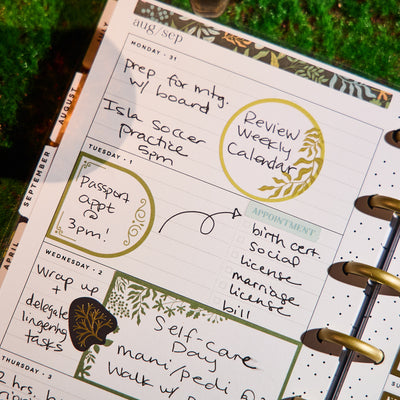 aug/sep
MONDAY · 31
prep for mtg.
w/ board
Isla Soccer
practice
5pm
Review
Weekly
Calendar
TUESDAY · 1
Passport
appt
@
3pm!
APPOINTMENT
birth cert.
Social
license
marriage
license
bill
WEDNESDAY · 2
Wrap up
+
delegate
lingering
tasks
Self-care
Day
mani/pedi @
Walk w/
THURSDAY · 3
2 hrs.
JULY
AUGUST
SEPTEMBER
APRIL